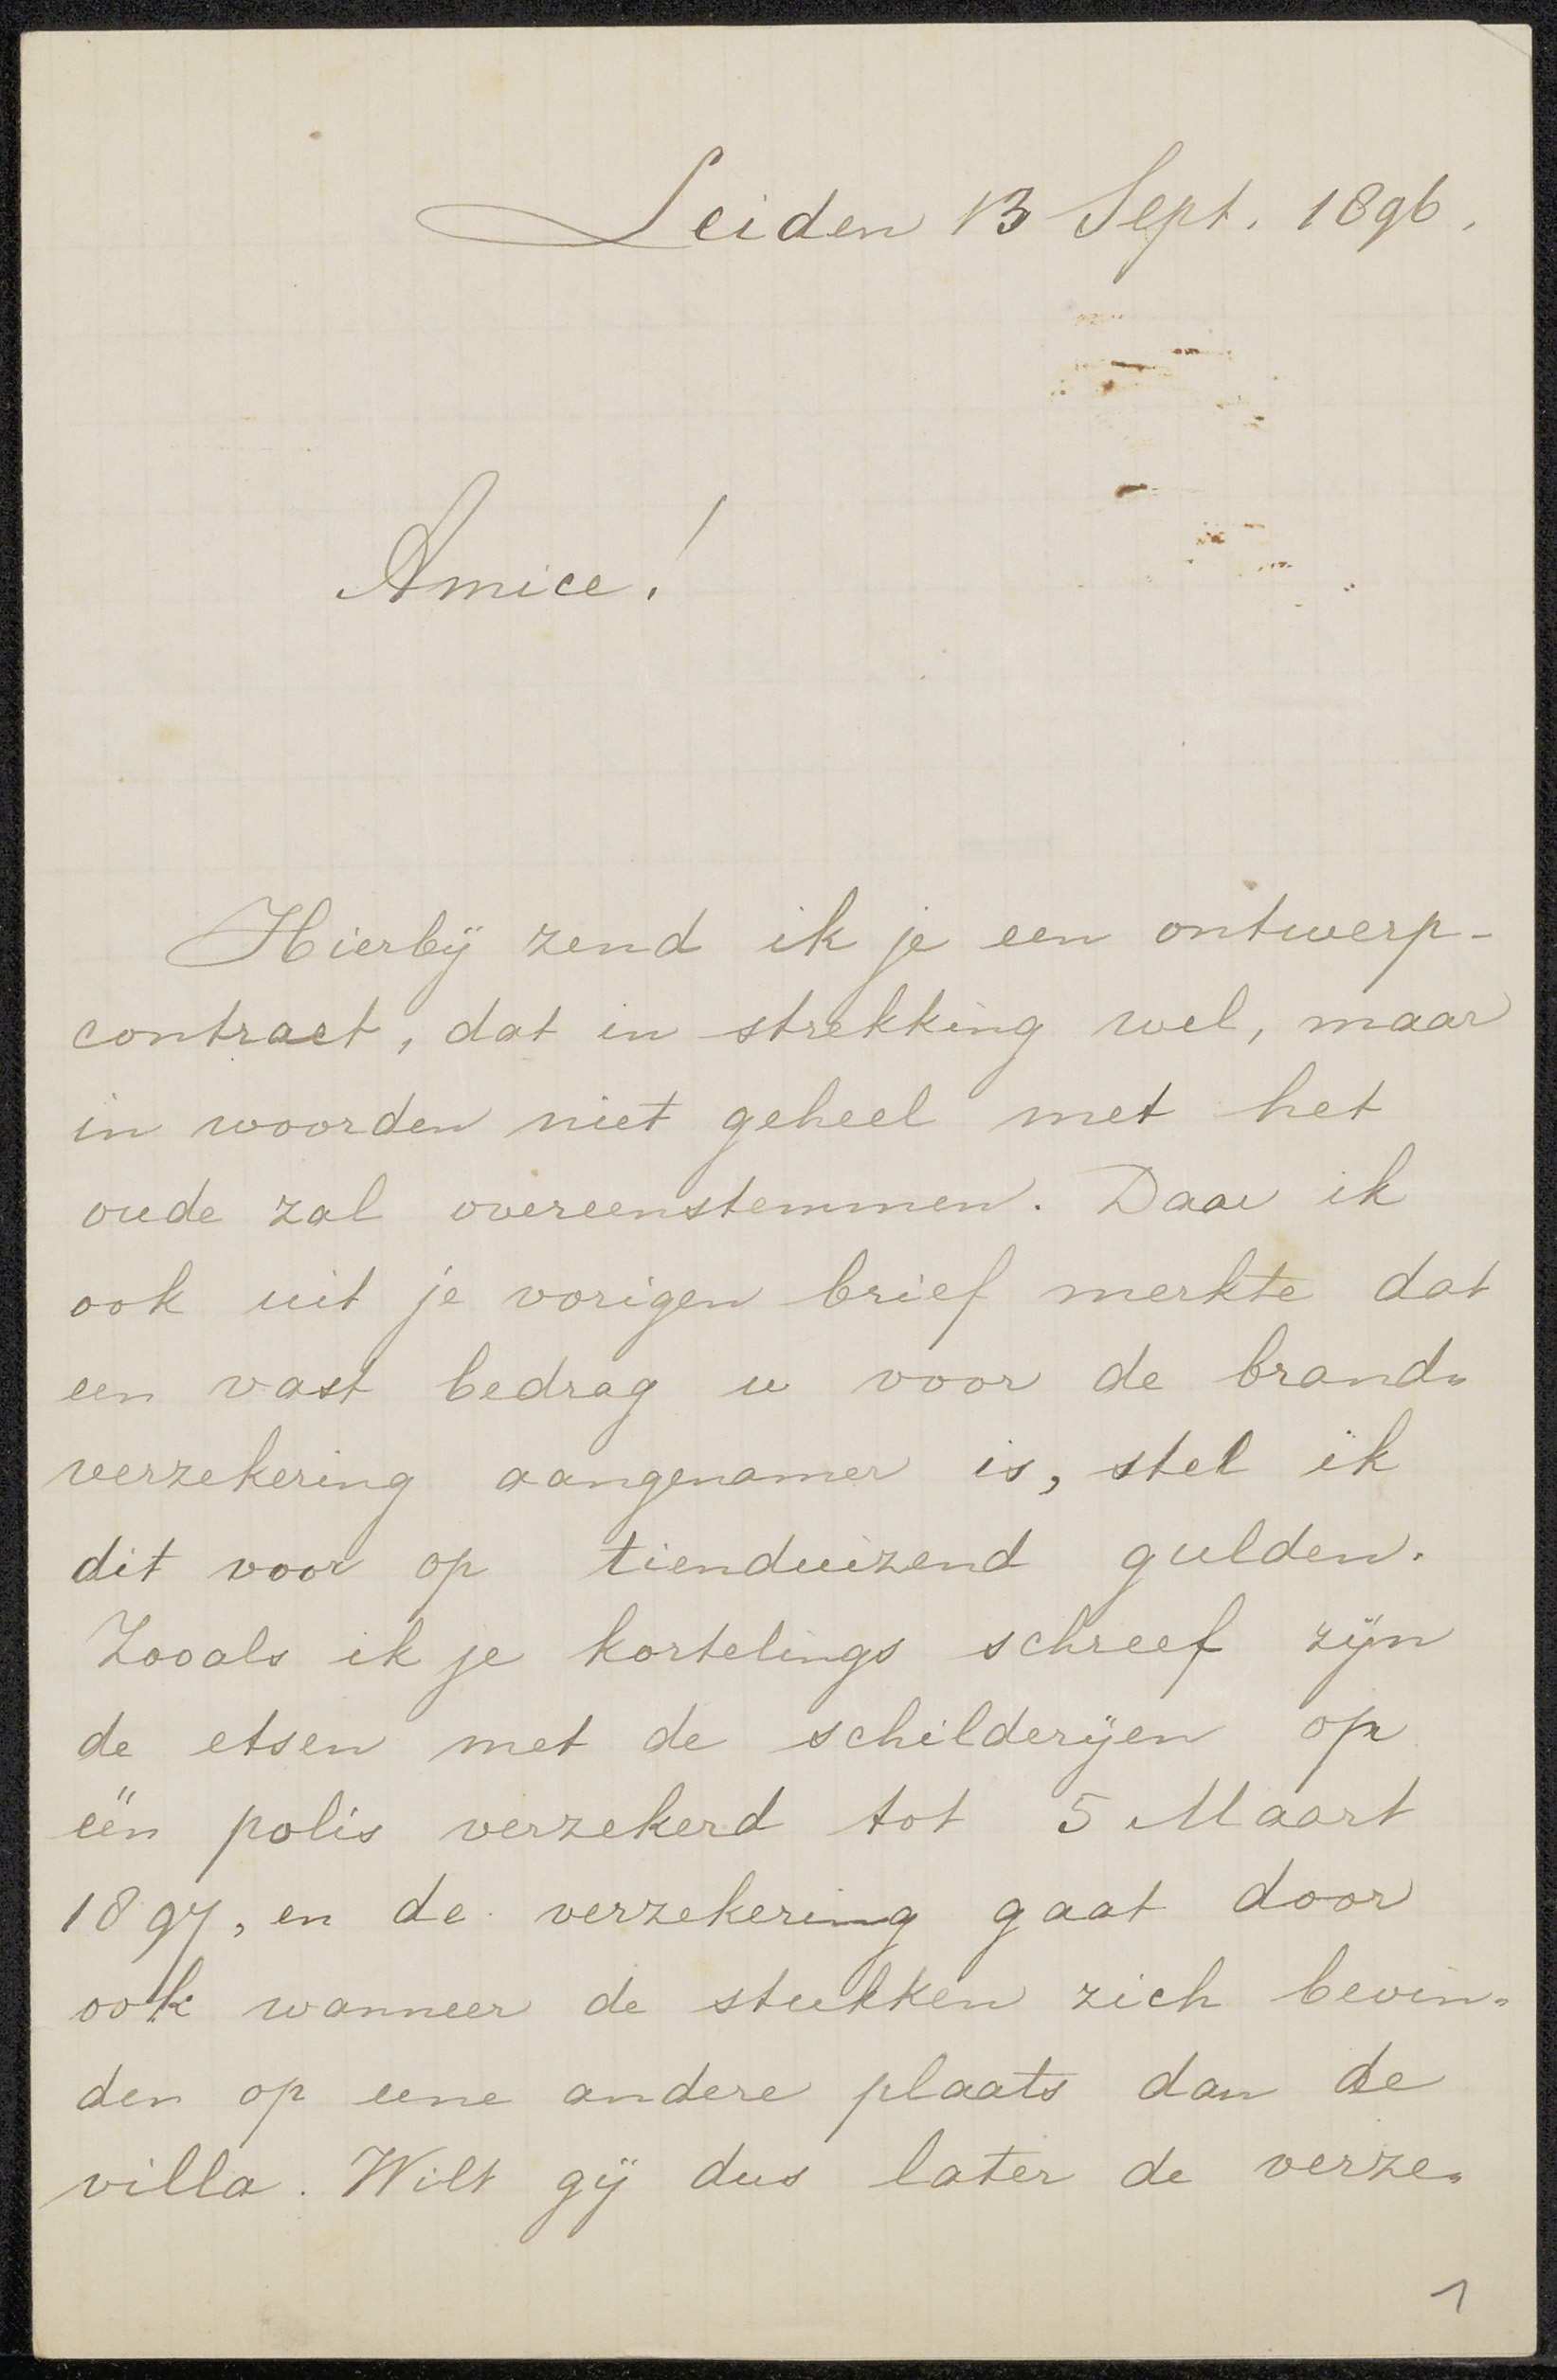 Leiden 13 Sept. 1896.
Amice!
Hierbij zend ik je een ontwerp-
contract, dat in strekking wel, maar
in woorden niet geheel met het
oude zal overeenstemmen. Daar ik
ook uit je vorigen brief merkte dat
een vast bedrag u voor de brand=
verzekering aangenamer is, stel ik
dit voor op tienduizend gulden.
Zooals ik je kortelings schreef zijn
de etsen met de schilderijen op
één polis verzekerd tot 5 Maart
1897, en de verzekering gaat door
ook wanneer de stukken zich bevin=
den op eene andere plaats dan de
villa. Wilt gij dus later de verze=
1